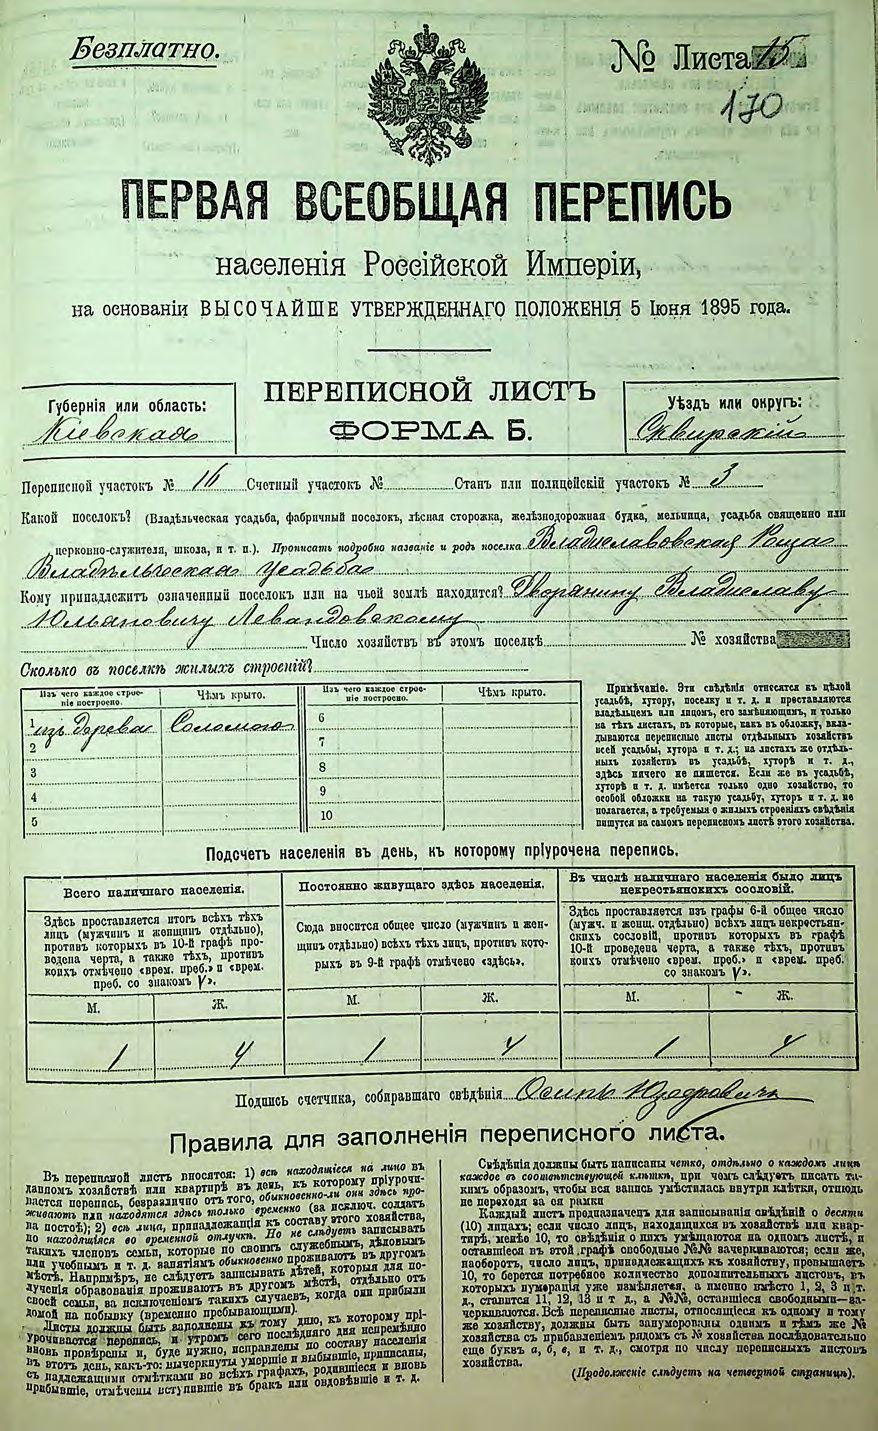 Безплатно.
№ Листа 15
170
ПЕРВАЯ ВСЕОБЩАЯ ПЕРЕПИСЬ
населенія Россійской Имперіи,
на основаніи ВЫСОЧАЙШЕ УТВЕРЖДЕННАГО ПОЛОЖЕНІЯ 5 Іюня 1895 года.
ПЕРЕПИСНОЙ ЛИСТЪ
ФОРМА Б.
Губернія или область:
Кіевская
Уѣздъ или округъ:
Сквирскій
Переписной участокъ № 16 Счетный участокъ № Станъ или полицейскій участокъ № 3
Какой поселокъ? (Владѣльческая усадьба, фабричный поселокъ, лѣсная сторожка, желѣзнодорожная будка, мельница, усадьба священно или
церковно-служителя, школа, и т. п.). Прописать подробно названіе и родъ поселка Владиславовская Роща
Владѣльческая Усадьба
Кому принадлежитъ означенный поселокъ или на чьей землѣ находится? Дворянину Владиславу
Юльяновичу Левандовскому
Число хозяйствъ въ этомъ поселкѣ № хозяйства
Сколько въ поселкѣ жилыхъ строеній?
Изъ чего каждое строеніе построено. Чѣмъ крыто. Изъ чего каждое строеніе построено. Чѣмъ крыто.
1 изъ дерева Соломою 6
2 7
3 8
4 9
5 10
Примѣчаніе. Эти свѣдѣнія относятся къ цѣлой
усадьбѣ, хутору, поселку и т. д. и преставляются
владѣльцемъ или лицомъ, его замѣняющимъ, и только
на тѣхъ листахъ, въ которые, какъ въ обложку, вкла-
дываются переписные листы отдѣльныхъ хозяйствъ
всей усадьбы, хутора и т. д.; на листахъ же отдѣль-
ныхъ хозяйствъ въ усадьбѣ, хуторѣ и т. д.,
здѣсь ничего не пишется. Если же въ усадьбѣ,
хуторѣ и т. д. имѣется только одно хозяйство, то
особой обложки на такую усадьбу, хуторъ и т. д. не
полагается, а требуемыя о жилыхъ строеніяхъ свѣдѣнія
пишутся на самомъ переписномъ листѣ этого хозяйства.
Подсчетъ населенія въ день, къ которому пріурочена перепись.
Всего наличнаго населенія.
Здѣсь проставляется итогъ всѣхъ тѣхъ
лицъ (мужчинъ и женщинъ отдѣльно),
противъ которыхъ въ 10-й графѣ про-
ведена черта, а также тѣхъ, противъ
коихъ отмѣчено «врем. преб.» и «врем.
преб. со знакомъ V».
М. Ж.
1 4
Постоянно живущаго здѣсь населенія.
Сюда вносится общее число (мужчинъ и жен-
щинъ отдѣльно) всѣхъ тѣхъ лицъ, противъ кото-
рыхъ въ 9-й графѣ отмѣчено «здѣсь».
М. Ж.
1 4
Въ числѣ наличнаго населенія было лицъ
некрестьянскихъ сословій.
Здѣсь проставляется изъ графы 6-й общее число
(мужч. и женщ. отдѣльно) всѣхъ лицъ некрестьян-
скихъ сословій, противъ которыхъ въ графѣ
10-й проведена черта, а также тѣхъ, противъ
коихъ отмѣчено «врем. преб.» и «врем. преб.
со знакомъ V».
М. Ж.
1 4
Подпись счетчика, собиравшаго свѣдѣнія Осипъ
Правила для заполненія переписного листа.
Въ переписной листъ вносятся: 1) всѣ находящіеся на лицо въ
данномъ хозяйствѣ или квартирѣ въ день, къ которому пріурочи-
вается перепись, безразлично отъ того, обыкновенно-ли они здѣсь про-
живаютъ или находятся здѣсь только временно (за исключ. солдатъ
на постоѣ); 2) всѣ лица, принадлежащія къ составу этого хозяйства,
но находящіяся во временной отлучкѣ. Но не слѣдуетъ записывать
такихъ членовъ семьи, которые по своимъ служебнымъ, дѣловымъ
или учебнымъ и т. д. занятіямъ обыкновенно проживаютъ въ другомъ
мѣстѣ. Напримѣръ, не слѣдуетъ записывать дѣтей, которыя для по-
лученія образованія проживаютъ въ другомъ мѣстѣ, отдѣльно отъ
своей семьи, за исключеніемъ такихъ случаевъ, когда они прибыли
домой на побывку (временно пребывающими).
Листы должны быть заполнены къ тому дню, къ которому прі-
урочивается перепись, и утромъ сего послѣдняго дня непремѣнно
вновь провѣрены и, буде нужно, исправлены по составу населенія
въ этотъ день, какъ-то: вычеркнуты умершіе и выбывшіе, приписаны,
съ надлежащими отмѣтками во всѣхъ графахъ, родившіеся и вновь
прибывшіе, отмѣчены вступившіе въ бракъ или овдовѣвшіе и т. д.
Свѣдѣнія должны быть написаны четко, отдѣльно о каждомъ лицѣ
каждое въ соотвѣтствующей клѣткѣ, при чемъ слѣдуетъ писать та-
кимъ образомъ, чтобы вся запись умѣстилась внутри клѣтки, отнюдь
не переходя за ея рамки
Каждый листъ предназначенъ для записыванія свѣдѣній о десяти
(10) лицахъ; если число лицъ, находящихся въ хозяйствѣ или квар-
тирѣ, менѣе 10, то свѣдѣнія о нихъ умѣщаются на одномъ листѣ, и
оставшіеся въ этой графѣ свободные №№ зачеркиваются; если же,
наоборотъ, число лицъ, принадлежащихъ къ хозяйству, превышаетъ
10, то берется потребное количество дополнительныхъ листовъ, въ
которыхъ нумерація уже измѣняется, а именно вмѣсто 1, 2, 3 и т.
д., ставится 11, 12, 13 и т д., а №№, оставшіеся свободными—за-
черкиваются. Всѣ переписные листы, относящіеся къ одному и тому
же хозяйству, должны быть занумерованы однимъ и тѣмъ же №
хозяйства съ прибавленіемъ рядомъ съ № хозяйства послѣдовательно
еще буквъ а, б, в, и т. д., смотря по числу переписныхъ листовъ
хозяйства.
(Продолженіе слѣдуетъ на четвертой страницѣ).